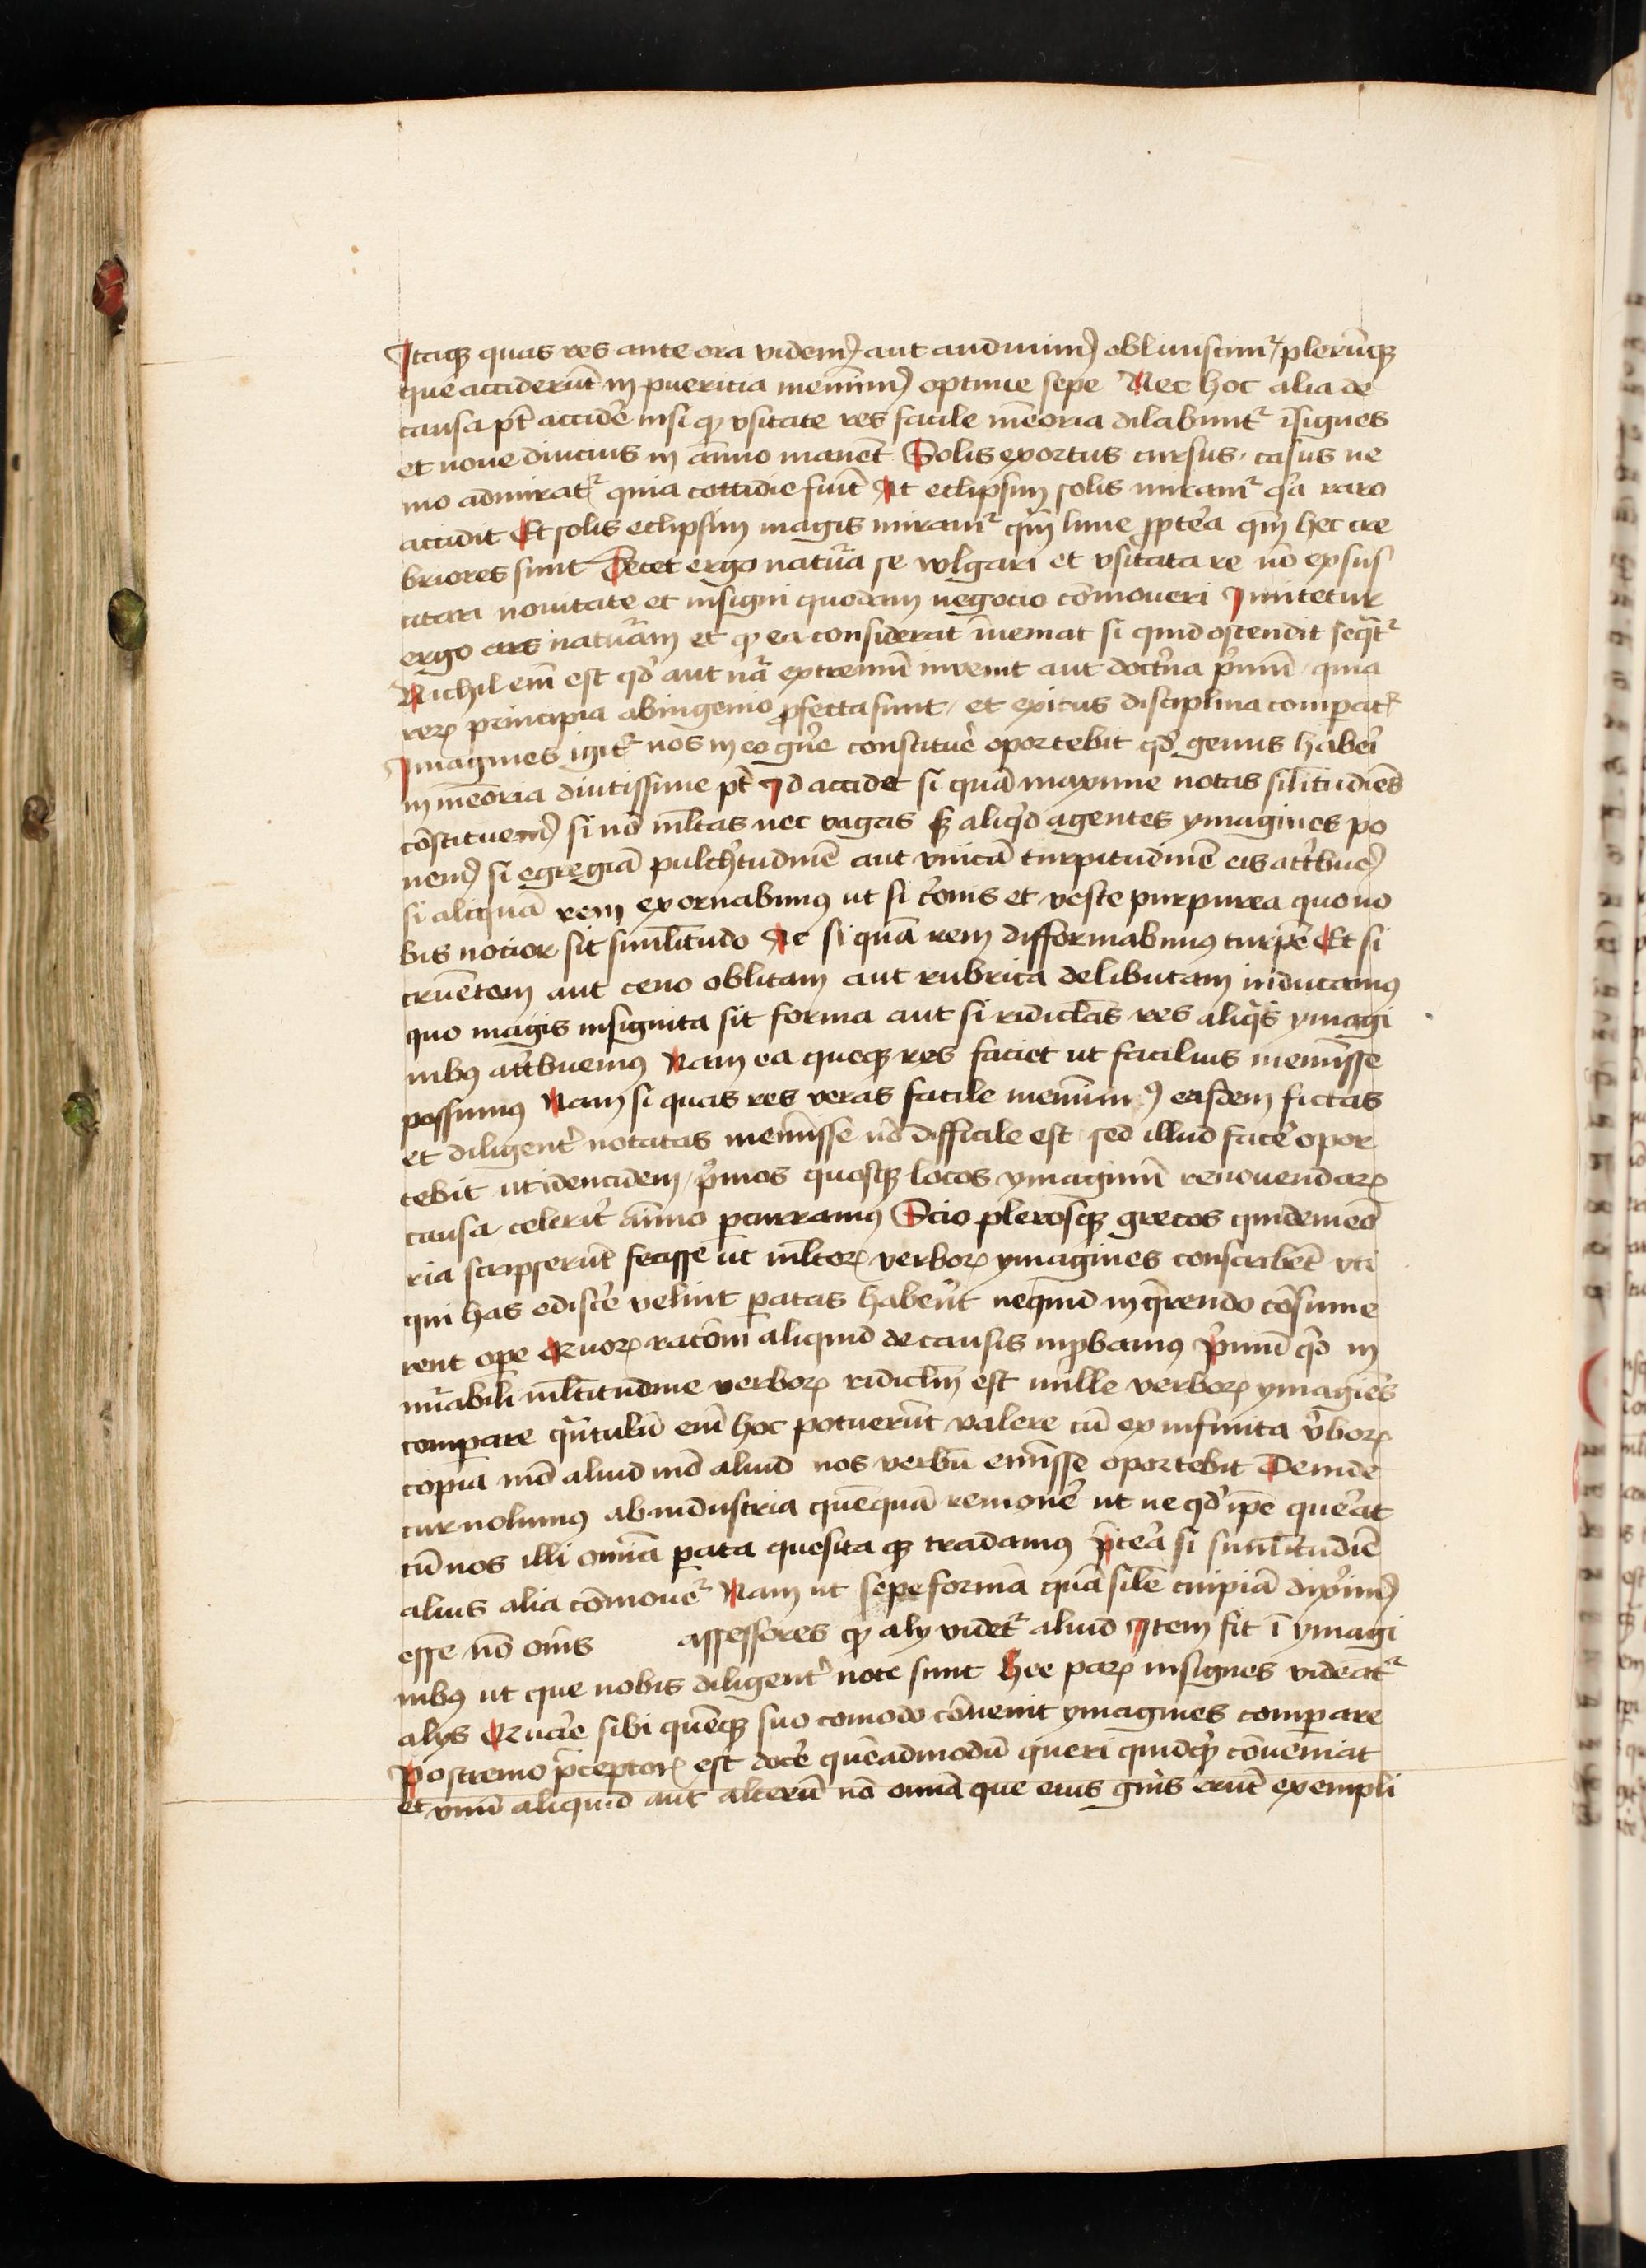 Itaqꝫ quas res ante ora videmꝰ aut audiuimꝰ obliuiscimur plerūqꝫ
que acciderūt in puericia meminimꝰ optime sepe Nec hoc alia de
causa pt̄ accidē nisi qꝫ vsitate res facile mēoria dilabunt᷑ īsignes
et noue diucius in aīmo manēt Solis exortus cursus casus ne
mo admirat᷑ quia cottidie fiūt At eclipsim solis miram᷑ qꝛa raro
accidit Et solis eclipsim magis miram᷑ qm̄ lune ꝓpte̾a qm̄ hec cre
briores sunt Docet ergo natura se vlgari et vsitata re nō exsus
citari nouitate et insigni quodam negocio cōmoueri Imitetur
ergo ars naturam et qꝫ ea considerat inueniat si quid ostendit seqt᷑
Nichil em̄ est qd̾ aut nā extremū invenit aut doct̾na p̾mū quia
reꝝ principia ab ingenio ꝓfecta sunt et exitus disciplina comparat᷑
Imagines igit᷑ nos in eo gn̾e constituē oportebit qd̾ genus habe̾i
in mēoria diutissime pt̄ Id accidet si quā maxime notas silitudīes
cōstituemꝰ si nō ml̄tas nec vagas sꝫ aliqd agentes ymagines po
nemꝰ si egregiā pulch̾tudinē aut vnicā turpitudinē eis att̾buemꝰ
si aliquā rem exornabimꝰ ut si co̾nis et veste purpurea quo no
bis notior sit simil̄itudo Ac si quā rem difformabimꝰ turpē Et si
cruētam aut ceno oblitam aut rubrica delibutam inducamꝰ
quo magis insignita sit forma aut si ridicl̄as res aliqs ymagi
nibꝰ att̾buemꝰ Nam ea queqꝫ res faciet ut facilius memīsse
possimꝰ Nam si quas res veras facile meminimꝰ easdem fictas
et diligent̾ notatas memīsse nō difficile est sed illud facē opor
tebit ut identidem p̾mos quosqꝫ locos ymaginū renouendaꝝ
causa celerit̾ aīmo ꝑcurramꝰ Scio plerosqꝫ grecos qui de meō
ria scripserūt fecisse ut ml̄toꝝ verboꝝ ymagines conscribēt vti
qui has ediscē velint ꝑatas habe̾nt ne quid in q̄rendo cōsume
rent oꝑe Quoꝝ racōni aliquid de causis inꝓbamꝰ p̾mū qd̾ in
nūabili ml̄titudine verboꝝ ridiclm̄ est mille verboꝝ ymagies
comparare qn̄tulū em̄ hoc potuerūt valere cū ex infinita v̾boꝝ
copia mō aliud mō aliud nos verbū emīsse oportebit Deinde
cur nolumꝰ ab industria quēquā remouē ut ne qd̾ ipē que̾at
cū nos illi om̄ia ꝑata quesita qꝫ tradamꝰ p̄te̾a si simil̄itudīe
alius alia cōmoue᷑ Nam ut sepe formā quā silē cuipiā dixe̾imꝰ
esse nō om̄s assessores qꝫ alij videt᷑ aliud Item fit ī ymagi
nibꝰ ut que nobis diligent̾ note sunt hee paꝝ insignes videāt᷑
alijs Quare sibi quēqꝫ suo comodo cōuenit ymagines comparare
Postremo p̄ceptoꝝ est docē quēadmodū queri quidqꝫ cōueniat
et vnū aliquid aut alterū nō omīa que eius gn̾is erūt exempli